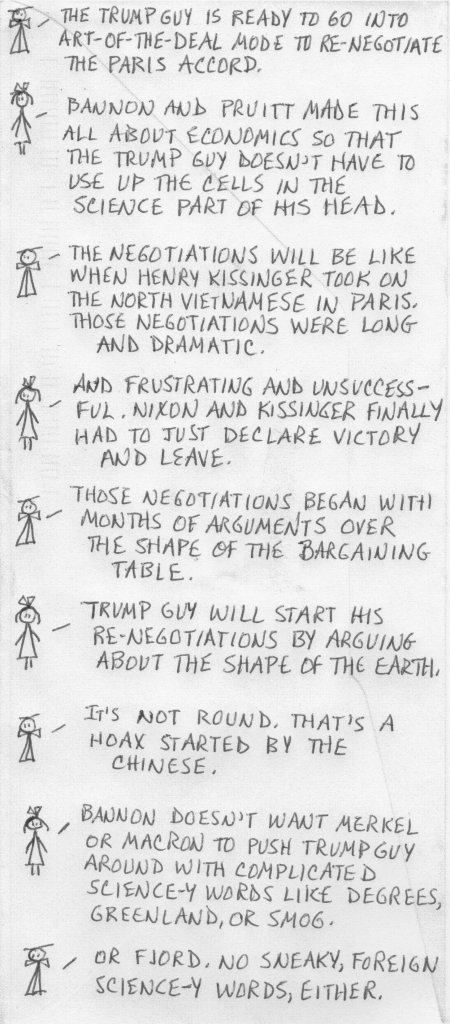 THE TRUMP GUY IS READY TO GO INTO
ART-OF-THE-DEAL MODE TO RE-NEGOTIATE
THE PARIS ACCORD.
BANNON AND PRUITT MADE THIS
ALL ABOUT ECONOMICS SO THAT
THE TRUMP GUY DOESN'T HAVE TO
USE UP THE CELLS IN THE
SCIENCE PART OF HIS HEAD.
THE NEGOTIATIONS WILL BE LIKE
WHEN HENRY KISSINGER TOOK ON
THE NORTH VIETNAMESE IN PARIS.
THOSE NEGOTIATIONS WERE LONG
AND DRAMATIC.
AND FRUSTRATING AND UNSUCCESS-
FUL. NIXON AND KISSINGER FINALLY
HAD TO JUST DECLARE VICTORY
AND LEAVE.
THOSE NEGOTIATIONS BEGAN WITH
MONTHS OF ARGUMENTS OVER
THE SHAPE OF THE BARGAINING
TABLE.
TRUMP GUY WILL START HIS
RE-NEGOTIATIONS BY ARGUING
ABOUT THE SHAPE OF THE EARTH.
IT'S NOT ROUND. THAT'S A
HOAX STARTED BY THE
CHINESE.
BANNON DOESN'T WANT MERKEL
OR MACRON TO PUSH TRUMP GUY
AROUND WITH COMPLICATED
SCIENCE-Y WORDS LIKE DEGREES,
GREENLAND, OR SMOG.
OR FJORD. NO SNEAKY, FOREIGN
SCIENCE-Y WORDS, EITHER.